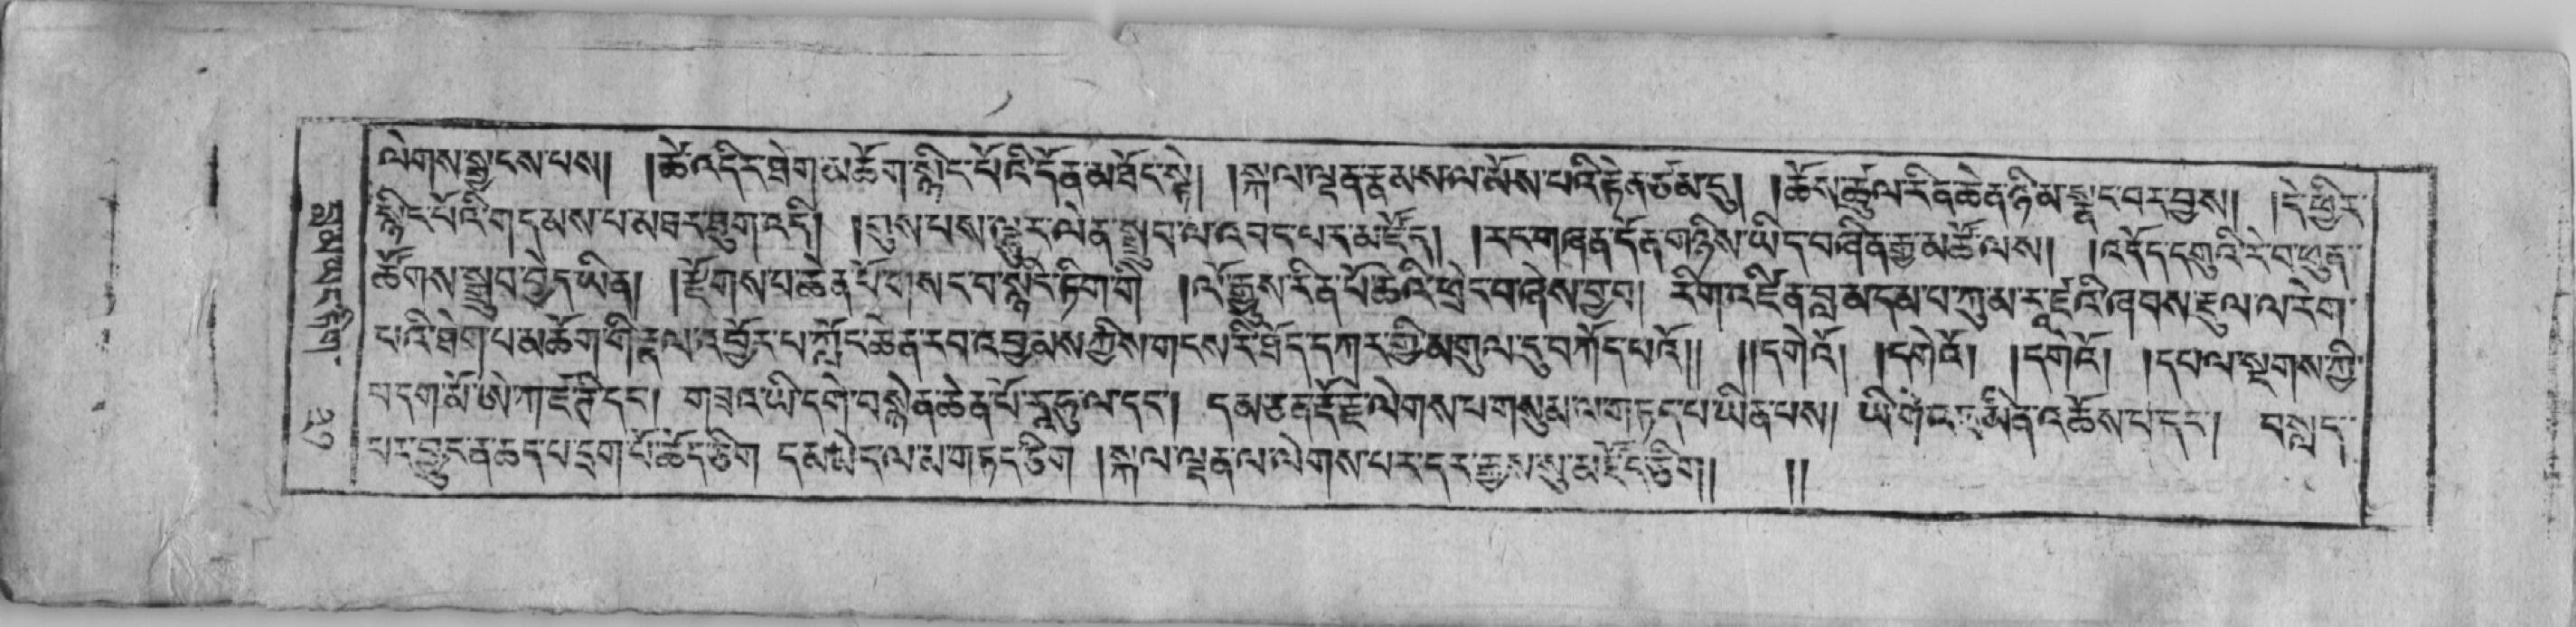 ལེགས་སྦྱངས་པས། །ཚེ་འདིར་ཐེག་མཆོག་སྙིང་པོའི་དོན་མཐོང་སྟེ། །སྐལ་ལྡན་རྣམས་ལ་མོས་པའི་རྟེན་ཙམ་དུ། །ཆོས་ཚུལ་རིན་ཆེན་ཉི་མ་སྣང་བར་བྱས། །དེ་ཕྱིར་
སྙིང་པོའི་གདམས་པ་མཐར་ཐུག་འདི། །གུས་པས་ལྷུར་ལེན་སྒྲུབ་ལ་འབད་པར་མཛོད། །རང་གཞན་དོན་གཉིས་ཡིད་བཞིན་རྒྱ་མཚོ་ལས། །འདོད་དགུའི་རེ་བ་ཕུན་
ཚོགས་སྒྲུབ་བྱེད་ཡིན། །རྫོགས་པ་ཆེན་པོ་གསང་བ་སྙིང་ཏིག་གི །ལོ་རྒྱུས་རིན་པོ་ཆེའི་ཕྲེང་བ་ཞེས་བྱ་བ། རིག་འཛིན་བླ་མ་དམ་པ་ཀུ་མ་རཱ་ཛའི་ཞབས་རྡུལ་ལ་རེག་
པའི་ཐེག་པ་མཆོག་གི་རྣལ་འབྱོར་པ་ཀློང་ཆེན་རབ་འབྱམས་ཀྱིས་གངས་རི་ཐོད་དཀར་གྱི་མགུལ་དུ་བཀོད་པའོ།། །།དགེའོ། །དགེའོ། །དགེའོ། །དཔལ་སྔགས་ཀྱི་
བདག་མོ་ཨེ་ཀ་ཛ་ཊི་དང་། གཟའ་ཡི་དགེ་བསྙེན་ཆེན་པོ་རཱ་ཧུ་ལ་དང་། དམ་ཅན་རྡོ་རྗེ་ལེགས་པ་གསུམ་ལ་གཏད་པ་ཡིན་པས། ཡི་གེ་ མིན་འཆོས་པ་དང་། བསླད་
པར་བྱུང་ན་ཆད་པ་དྲག་པོ་ཆོད་ཅིག དམ་མེད་ལ་མ་གཏད་ཅིག །སྐལ་ལྡན་ལ་ལེགས་པར་དར་རྒྱས་སུ་མཛོད་ཅིག། །།